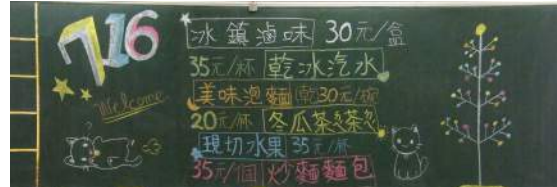 716
Welcome
冰鎮滷味 30元/盒
35元/杯 乾冰汽水
美味泡麵(乾)30元/碗
20元/杯 冬瓜茶
現切水果 35元/杯
35元/個 炒麵麵包